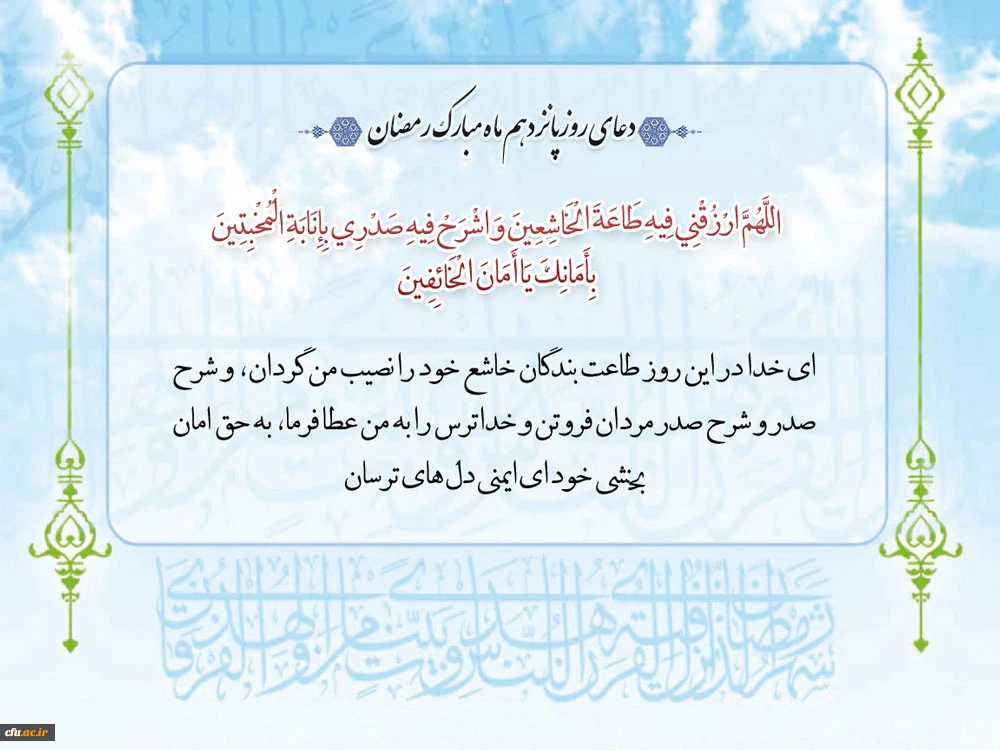 دعای روز پانزدهم ماه مبارک رمضان
اللَّهُمَّ ارْزُقْنِي فِيهِ طَاعَةَ الْخَاشِعِينَ وَ اشْرَحْ فِيهِ صَدْرِي بِإِنَابَةِ الْمُخْبِتِينَ
بِأَمَانِكَ يَا أَمَانَ الْخَائِفِينَ
ای خدا در این روز طاعت بندگان خاشع خود را نصیب من گردان، و شرح
صدر و شرح صدر مردان فروتن و خداترس را به من عطا فرما، به حق امان
بخشی خود ای ایمنی دل های ترسان
شهر رمضان الذی انزل فیه القرآن هدی للناس و بینات من الهدی و الفرقان
cfu.ac.ir